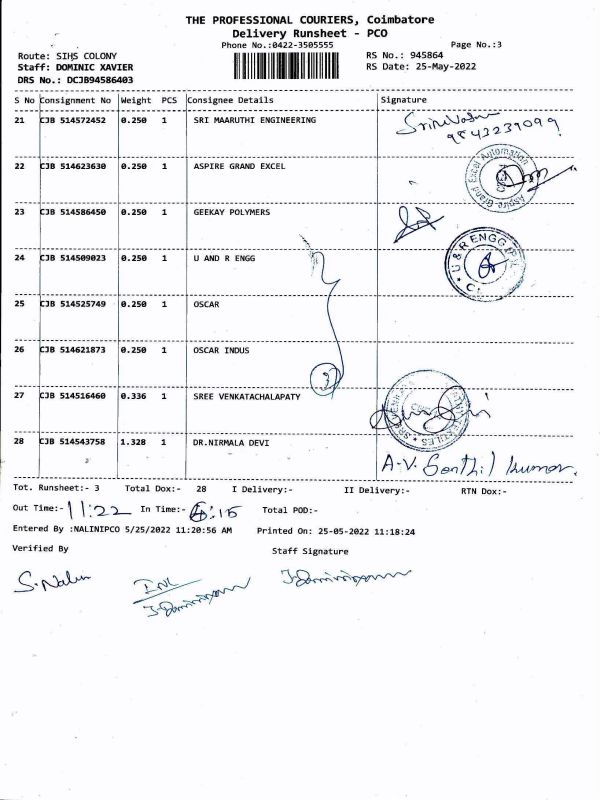 THE PROFESSIONAL COURIERS, Coimbatore
Delivery Runsheet - PCO
Phone No.:0422-3505555 Page No.:3
Route: SIHS COLONY RS No.: 945864
Staff: DOMINIC XAVIER RS Date: 25-May-2022
DRS No.: DCJB94586403
S No Consignment No Weight PCS Consignee Details Signature
21 CJB 514572452 0.250 1 SRI MAARUTHI ENGINEERING
9843239099
22 CJB 514623630 0.250 1 ASPIRE GRAND EXCEL
Aspire Grand Excel Automation
23 CJB 514586450 0.250 1 GEEKAY POLYMERS
24 CJB 514509023 0.250 1 U AND R ENGG
U & R ENGG (P)
25 CJB 514525749 0.250 1 OSCAR
26 CJB 514621873 0.250 1 OSCAR INDUS
27 CJB 514516460 0.336 1 SREE VENKATACHALAPATY
28 CJB 514543758 1.328 1 DR.NIRMALA DEVI
A.V. Senthil kumar.
Tot. Runsheet:- 3 Total Dox:- 28 I Delivery:- II Delivery:- RTN Dox:-
Out Time:- 11:22 In Time:- :15 Total POD:-
Entered By :NALINIPCO 5/25/2022 11:20:56 AM Printed On: 25-05-2022 11:18:24
Verified By Staff Signature
S. Nalini